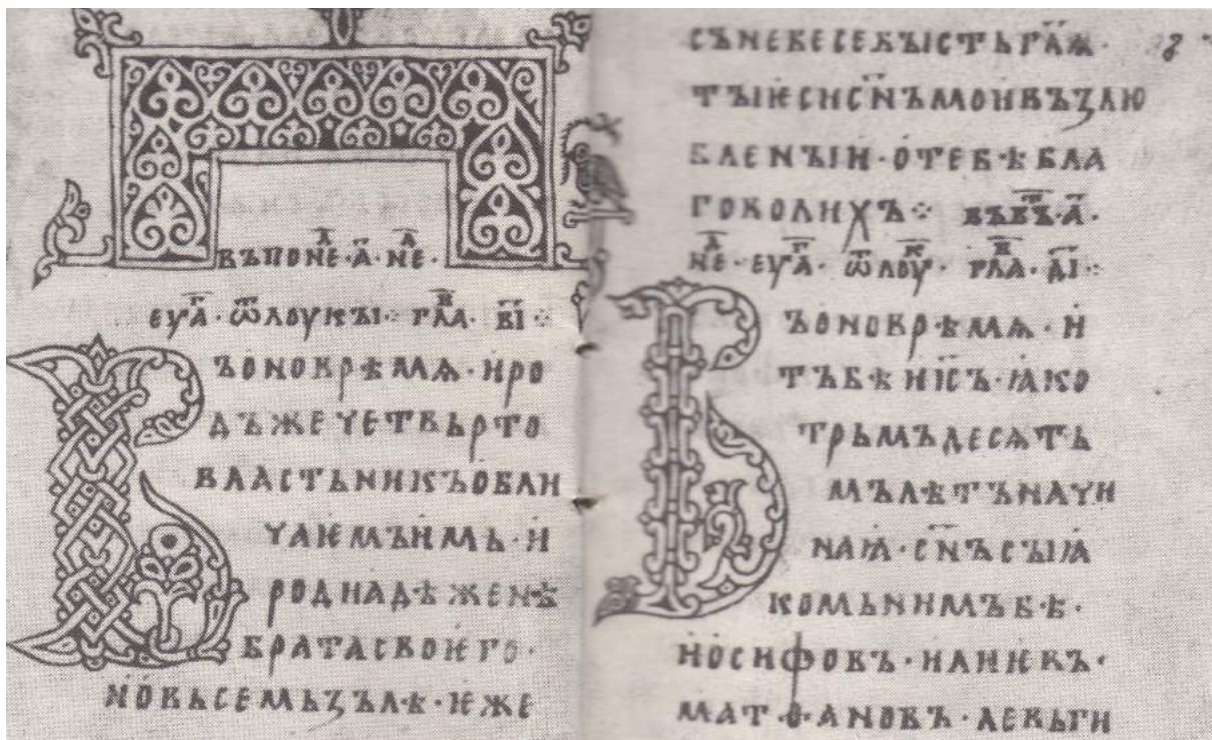 въпоне҇д·а҃·не҇д·
еуа҇г·ѿлоукы·:· гла҇в·в҃і·:·
ъоноврѣмѧ·иро
дъжечетвьрто
властьникъобли
чаѥмъимь·и
родиадѣженѣ
братасвоѥго·
иовьсемьзълѣ·ѥже
съневесебыстьгл҃ѧ·
тыѥсисн҃ъмоивъзлю
бленыи·отебѣбла
говолихъ·:· въвт҇·а҃·
не҇д·еуа҇г·ѿлоу҇к·гла҇в·д҃і·:·
В
ъоноврѣмѧ·и
В
тъбѣис҃ъ·ꙗко
трьмъдесѧть
мълѣтъначи
наꙗ·сн҃ъсыꙗ
комьнимъбѣ·
иосифовъ·илиѥвъ·
мат·ѳ·ановъ·левьги